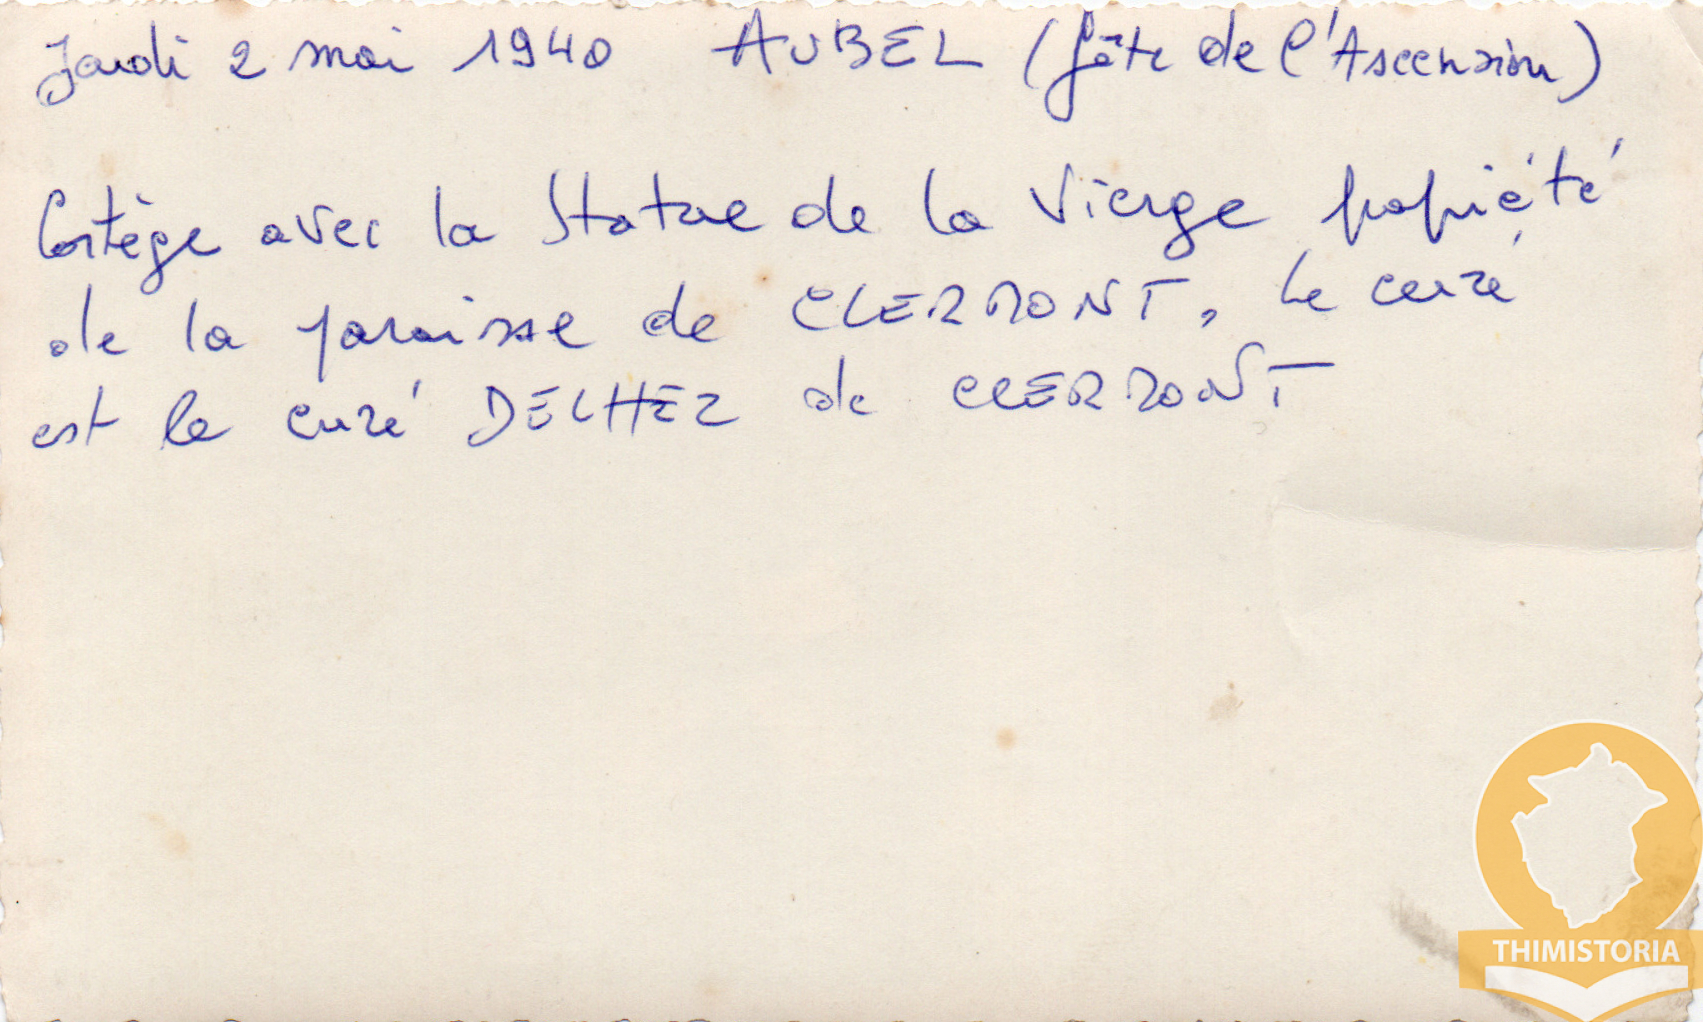 Jeudi 2 mai 1940 AUBEL (fête de l'Ascension)
Cortège avec la Statue de la Vierge propriété
de la paroisse de CLERMONT, le curé
est le curé DELHEZ de CLERMONT
THIMISTORIA